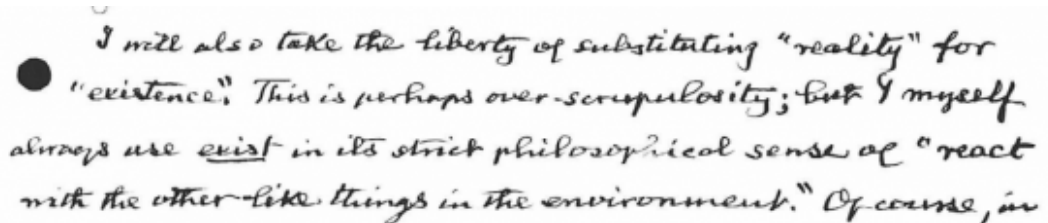 I will also take the liberty of substituting "reality" for
"existence." This is perhaps over-scrupulosity; but I myself
always use exist in its strict philosophical sense of "react
with the other like things in the environment." Of course, in